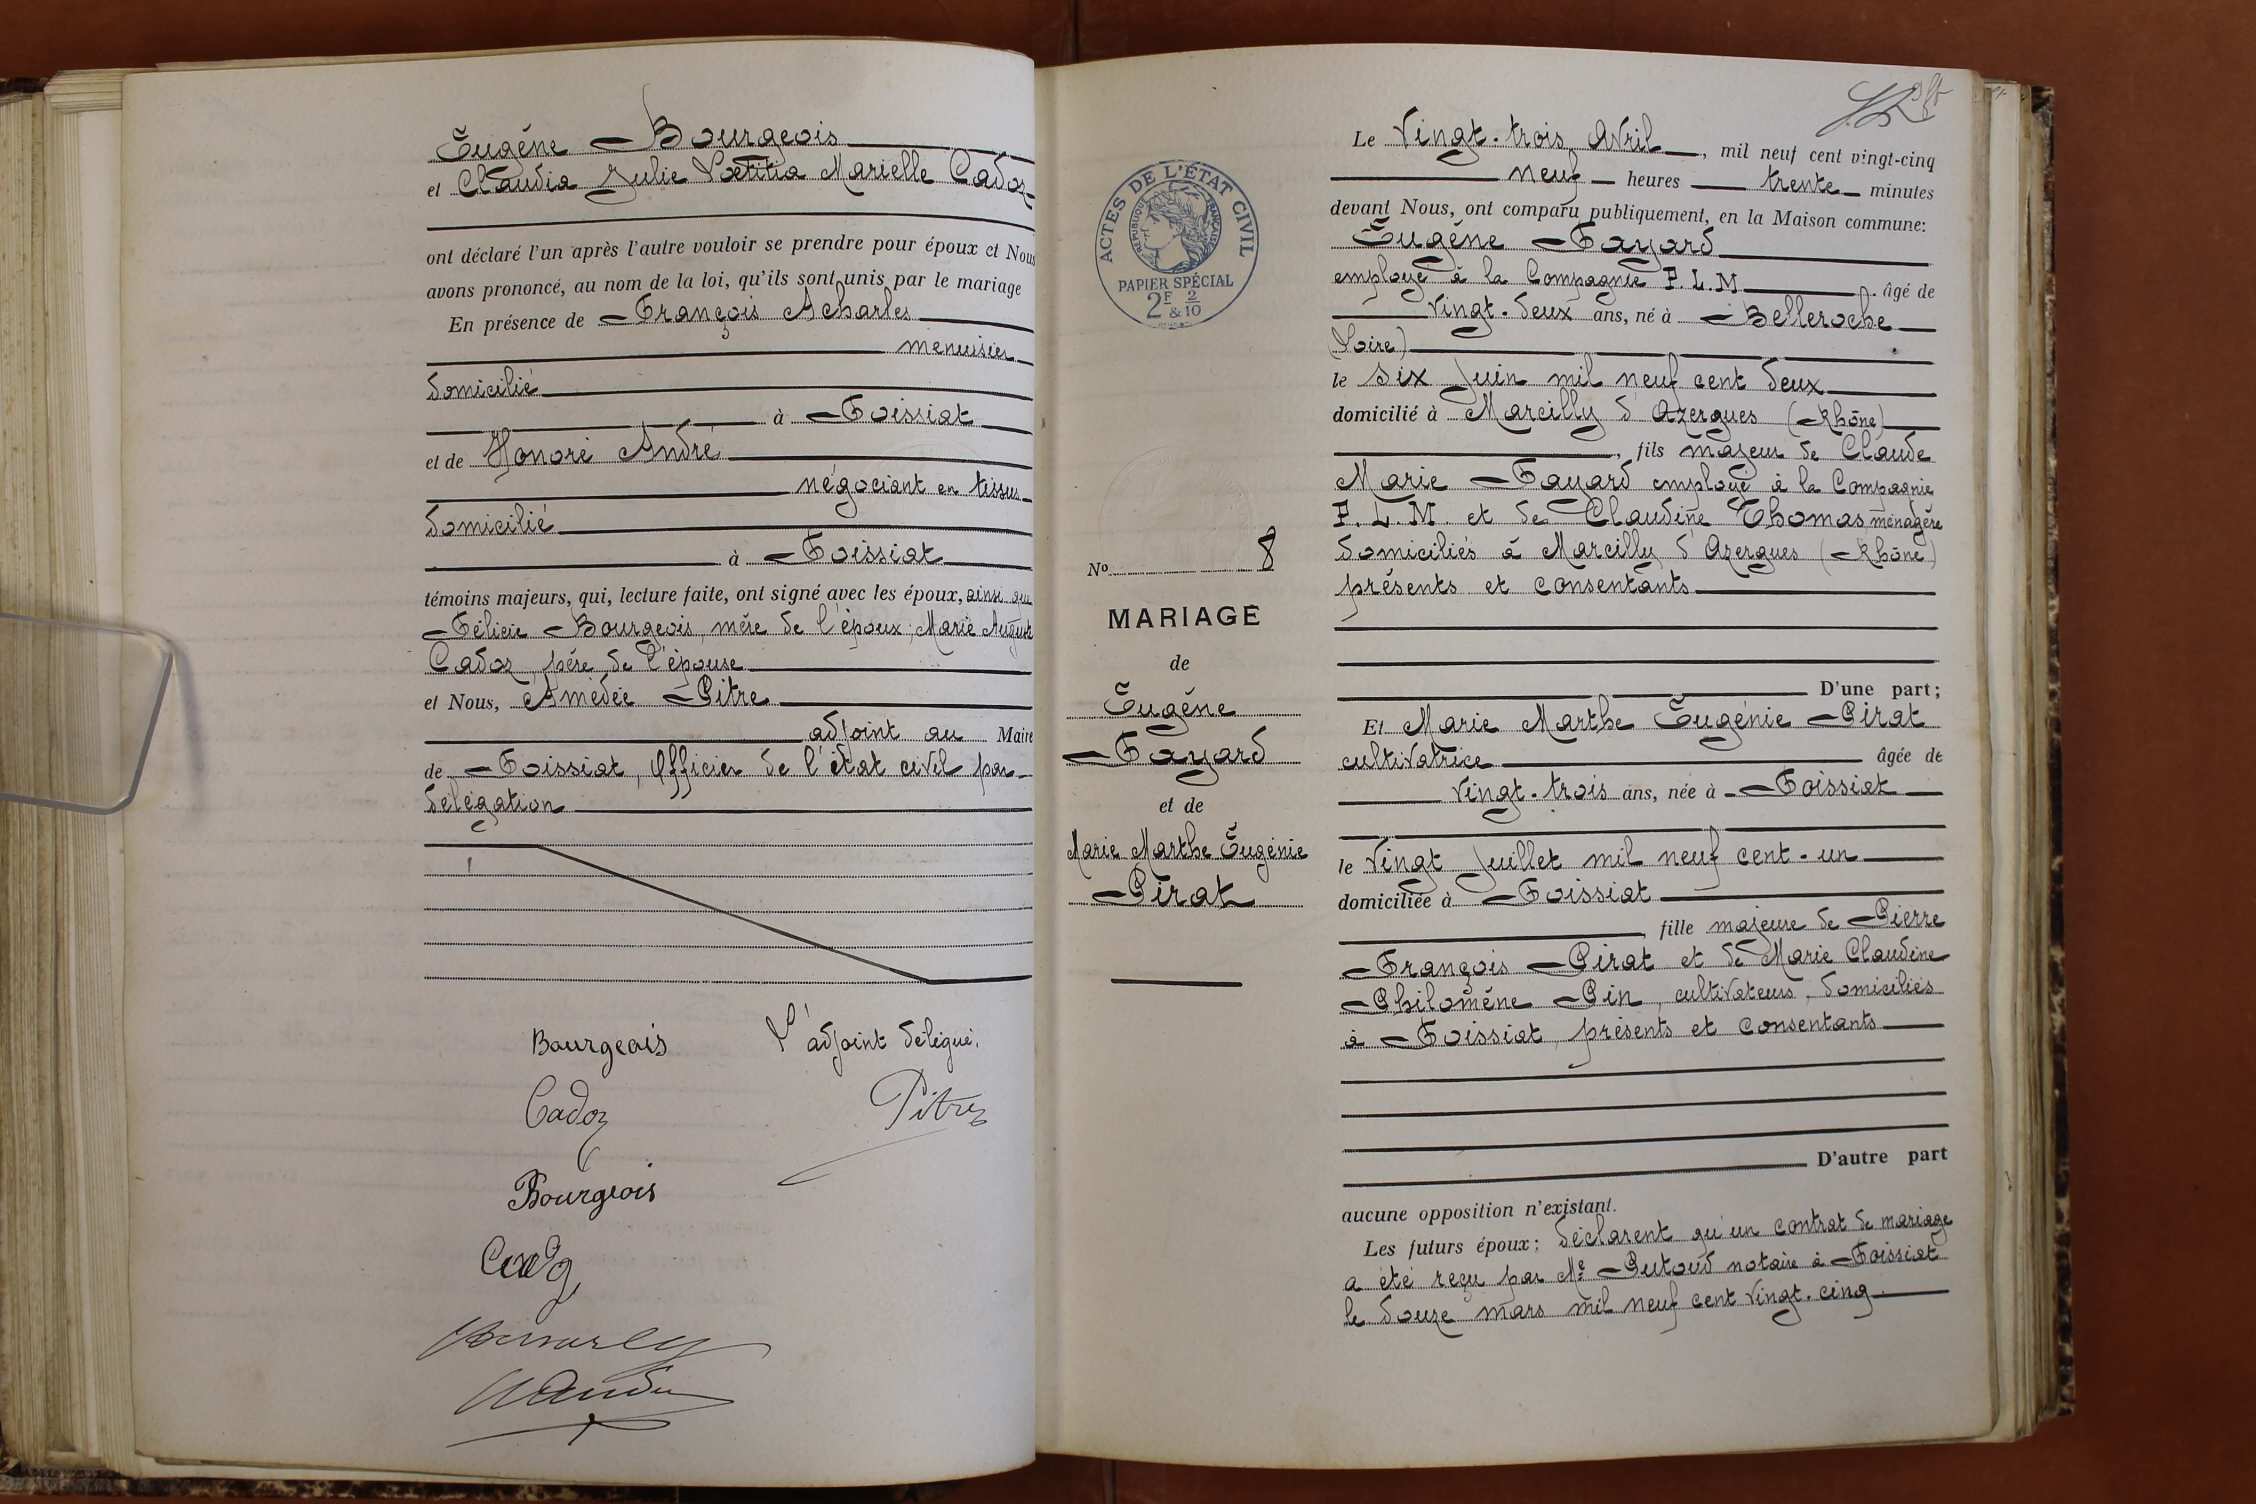 Eugène Bourgeois
et Claudia Julie Lœtitia Marielle Cadoz
ont déclaré l'un après l'autre vouloir se prendre pour époux et Nous
avons prononcé, au nom de la loi, qu'ils sont unis par le mariage
En présence de François Acharles
menuisier
domicilié
à Foissiat
et de Honoré André
négociant en tissus
domicilié
à Foissiat
témoins majeurs, qui, lecture faite, ont signé avec les époux, ainsi que
Félicie Bourgeois, mère de l'époux; Marie Auguste
Cadoz père de l'épouse
et Nous, Amédée Pitre
adjoint au Maire
de Foissiat, Officier de l'état civil par
délégation
Bourgeois
L'adjoint délégué,
Cadoz
Pitre
Bourgeois
ACTES DE L'ÉTAT CIVIL
RÉPUBLIQUE FRANÇAISE
PAPIER SPÉCIAL
2F & 2/10
No 8
MARIAGE
de
Eugène
Fayard
et de
Marie Marthe Eugénie
Pirat
Le vingt-trois Avril, mil neuf cent vingt-cinq
neuf heures trente minutes
devant Nous, ont comparu publiquement, en la Maison commune:
Eugène Fayard
employé à la Compagnie P.L.M. âgé de
vingt-deux ans, né à Belleroche
(Loire)
le six juin mil neuf cent deux
domicilié à Marcilly d'Azergues (Rhône)
, fils majeur de Claude
Marie Fayard employé à la Compagnie
P.L.M. et de Claudine Thomas ménagère
domiciliés à Marcilly d'Azergues (Rhône)
présents et consentants
D'une part;
Et Marie Marthe Eugénie Pirat
cultivatrice âgée de
vingt-trois ans, née à Foissiat
le vingt juillet mil neuf cent-un
domiciliée à Foissiat
, fille majeure de Pierre
François Pirat et de Marie Claudine
Philomène Pin, cultivateurs, domiciliés
à Foissiat, présents et consentants
D'autre part
aucune opposition n'existant.
Les futurs époux; déclarent qu'un contrat de mariage
a été reçu par Me Putoud notaire à Foissiat
le douze mars mil neuf cent vingt-cinq